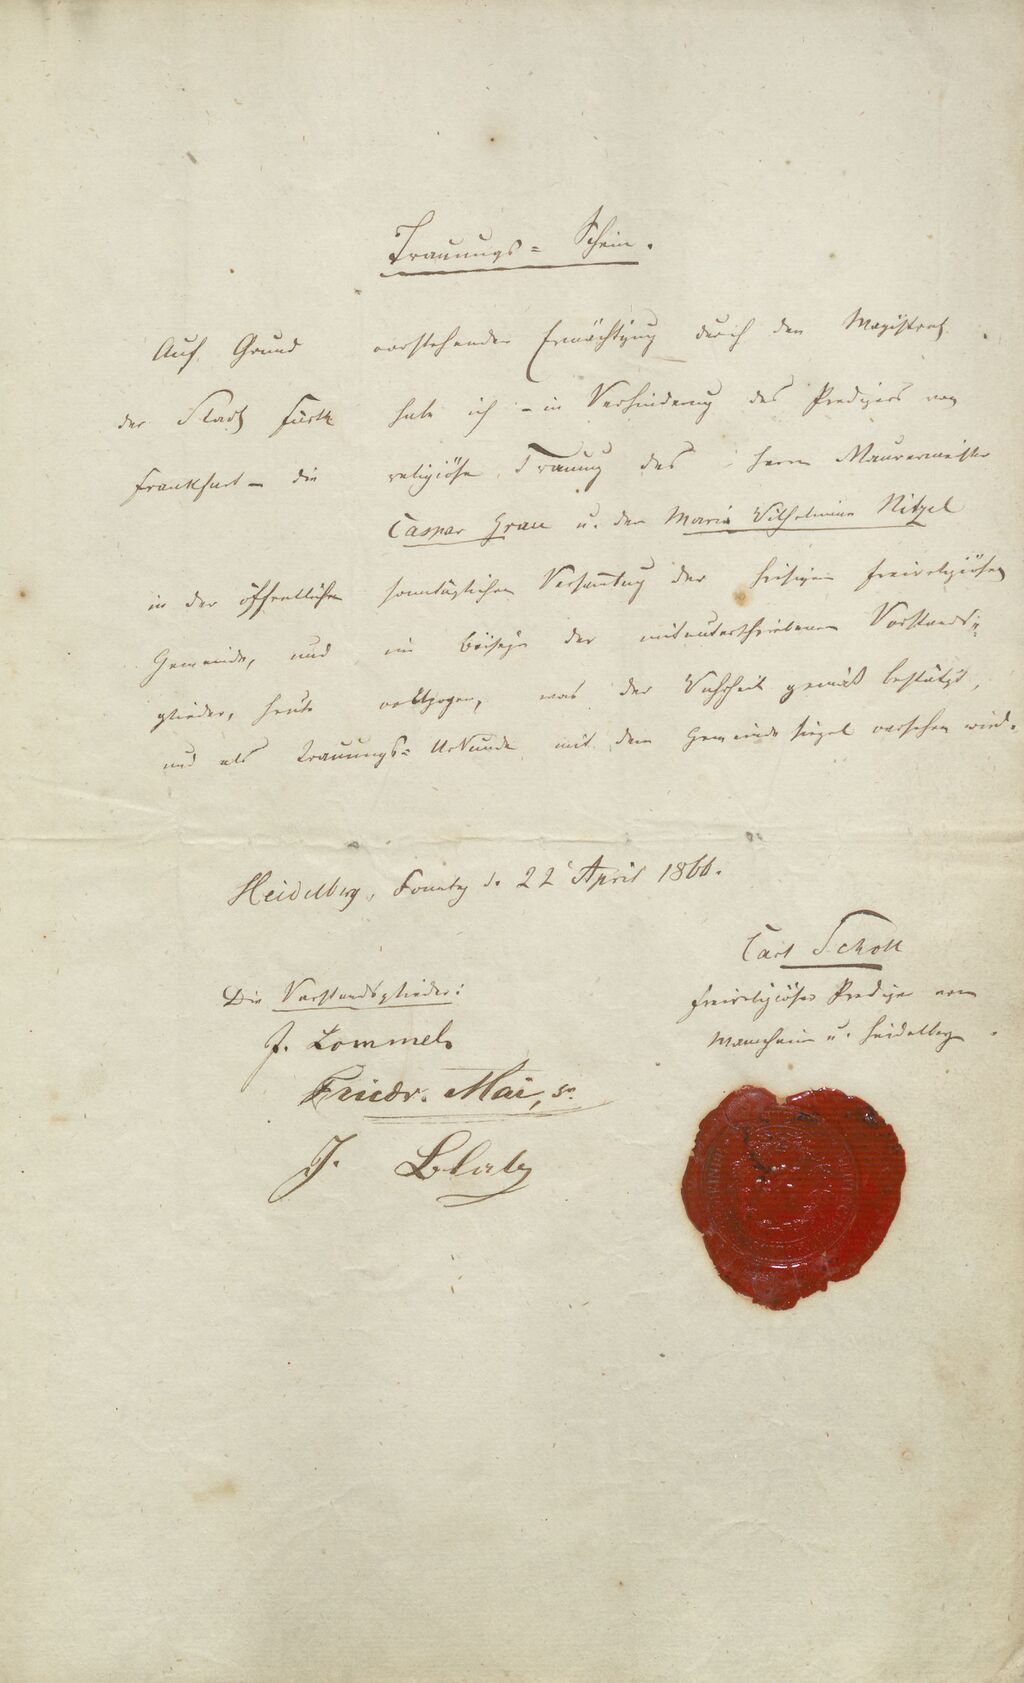 Trauungs= Schein.
Auf Grund vorstehender Ermächtigung durch den Magistrat
der Stadt Fürth habe ich – in Verhinderung des Predigers von
Frankfurt – die religiöse Trauung des Herrn Maurermeister
Caspar Grau u. der Maria Wilhelmine Nitzel
in der öffentlichen sonntäglichen Versammlung der hiesigen freireligiösen
Gemeinde, und im Beisein der mitunterschriebenen Vorstands=
glieder, heute vollzogen, was der Wahrheit gemäß bestätigt,
und als Trauungs= Urkunde mit dem Gemeindesiegel versehen wird.
Heidelberg, Sonntag d. 22 April 1866.
Carl Scholl
freireligiöser Prediger von
Mannheim u. Heidelberg.
Die Vorstandsglieder:
J. Lommel
Friedr. Mai, sr.
J.